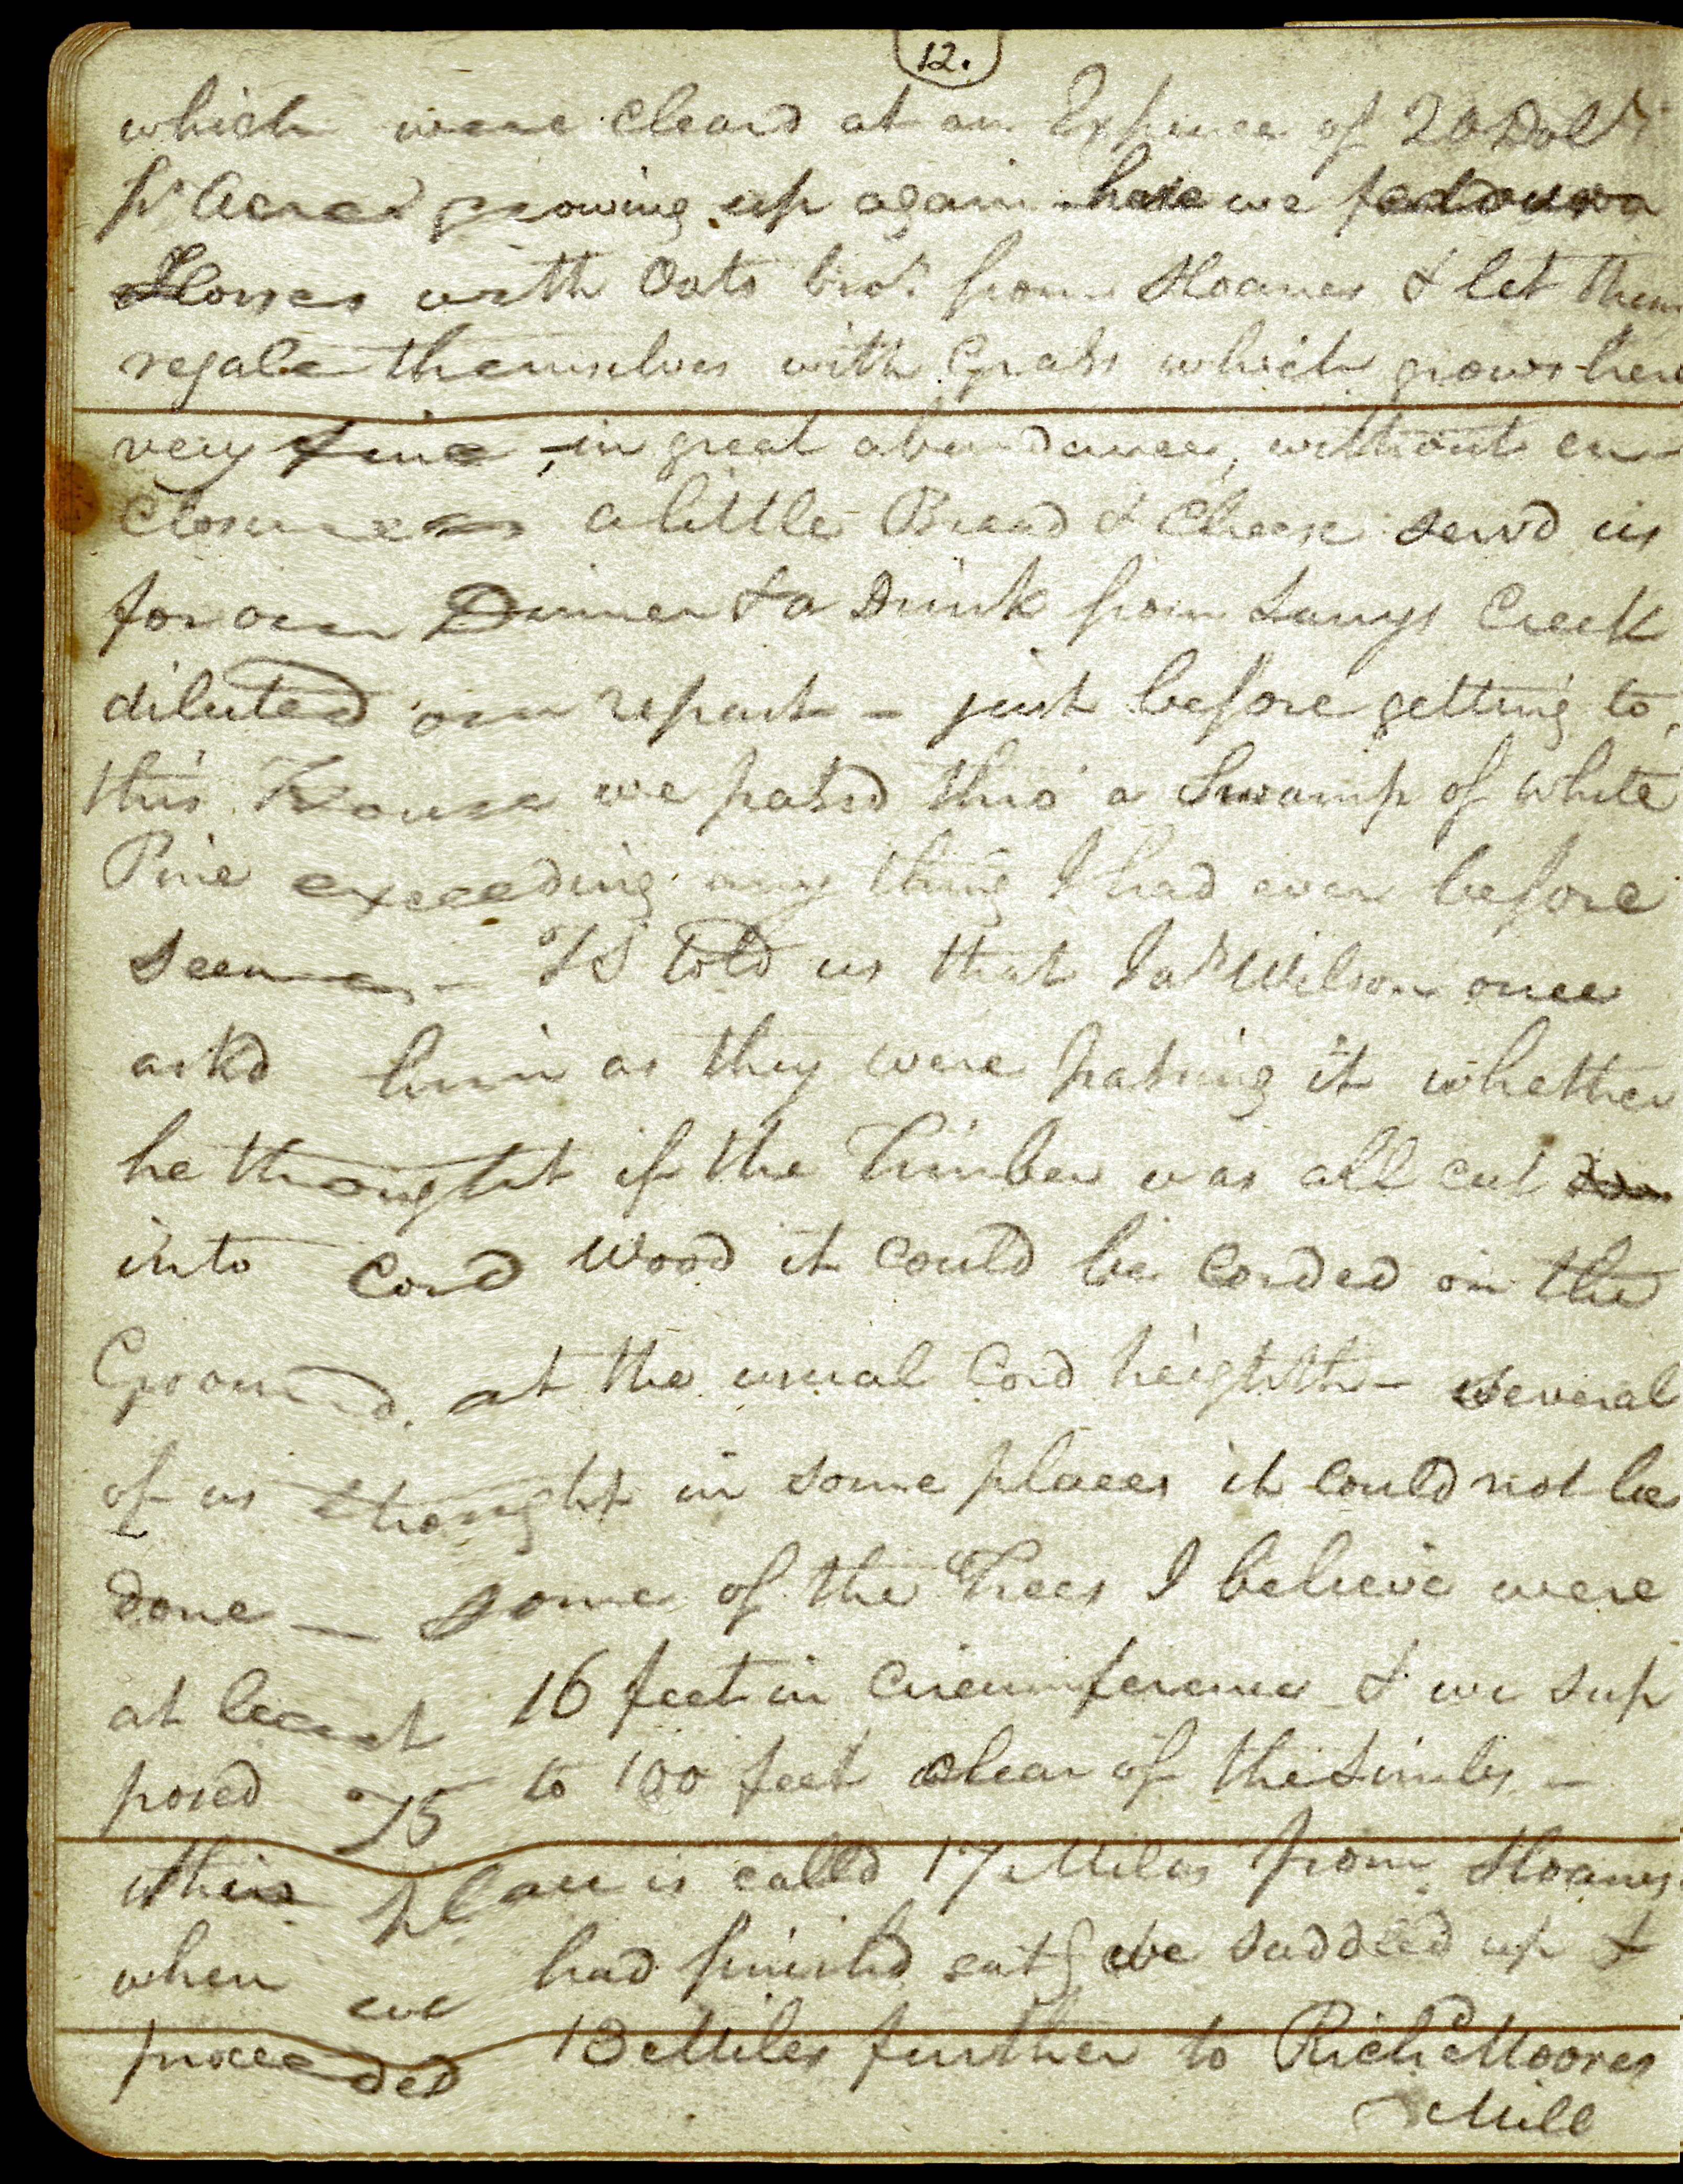 12.
which were cleard at an Expence of 20 Doll.s
pr Acre growing up again here we fed our
Horses with Oats bro.t from Sloanes & let them
regale themselves with Grass which grows here
very fine, in great abundance, without en-
closures a little Bread & Cheese serv'd us
for our Dinner & a Drink from Larrys Creek
diluted our repast - just before getting to
this House we passd thro' a Swamp of White
Pine exceeding any thing I had ever before
seen - IS told us that Jas Wilson once
askd him as they were passing it whether
he thought if the Timber was all cut
into Cord Wood it could be Corded on the
Ground at the usual Cord heighth - several
of us thought in some places it could not be
done - some of the Trees I believe were
at least 16 feet in Circumference & we sup
posed 75 to 100 feet clear of the Limbs -
this place is calld 17 Miles from Sloanes
when we had finishd eatg we saddled up &
proceeded 13 Miles further to Richd Moores
Mill